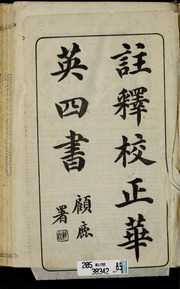 註釋校正華
英四書
顧
署
285
38342